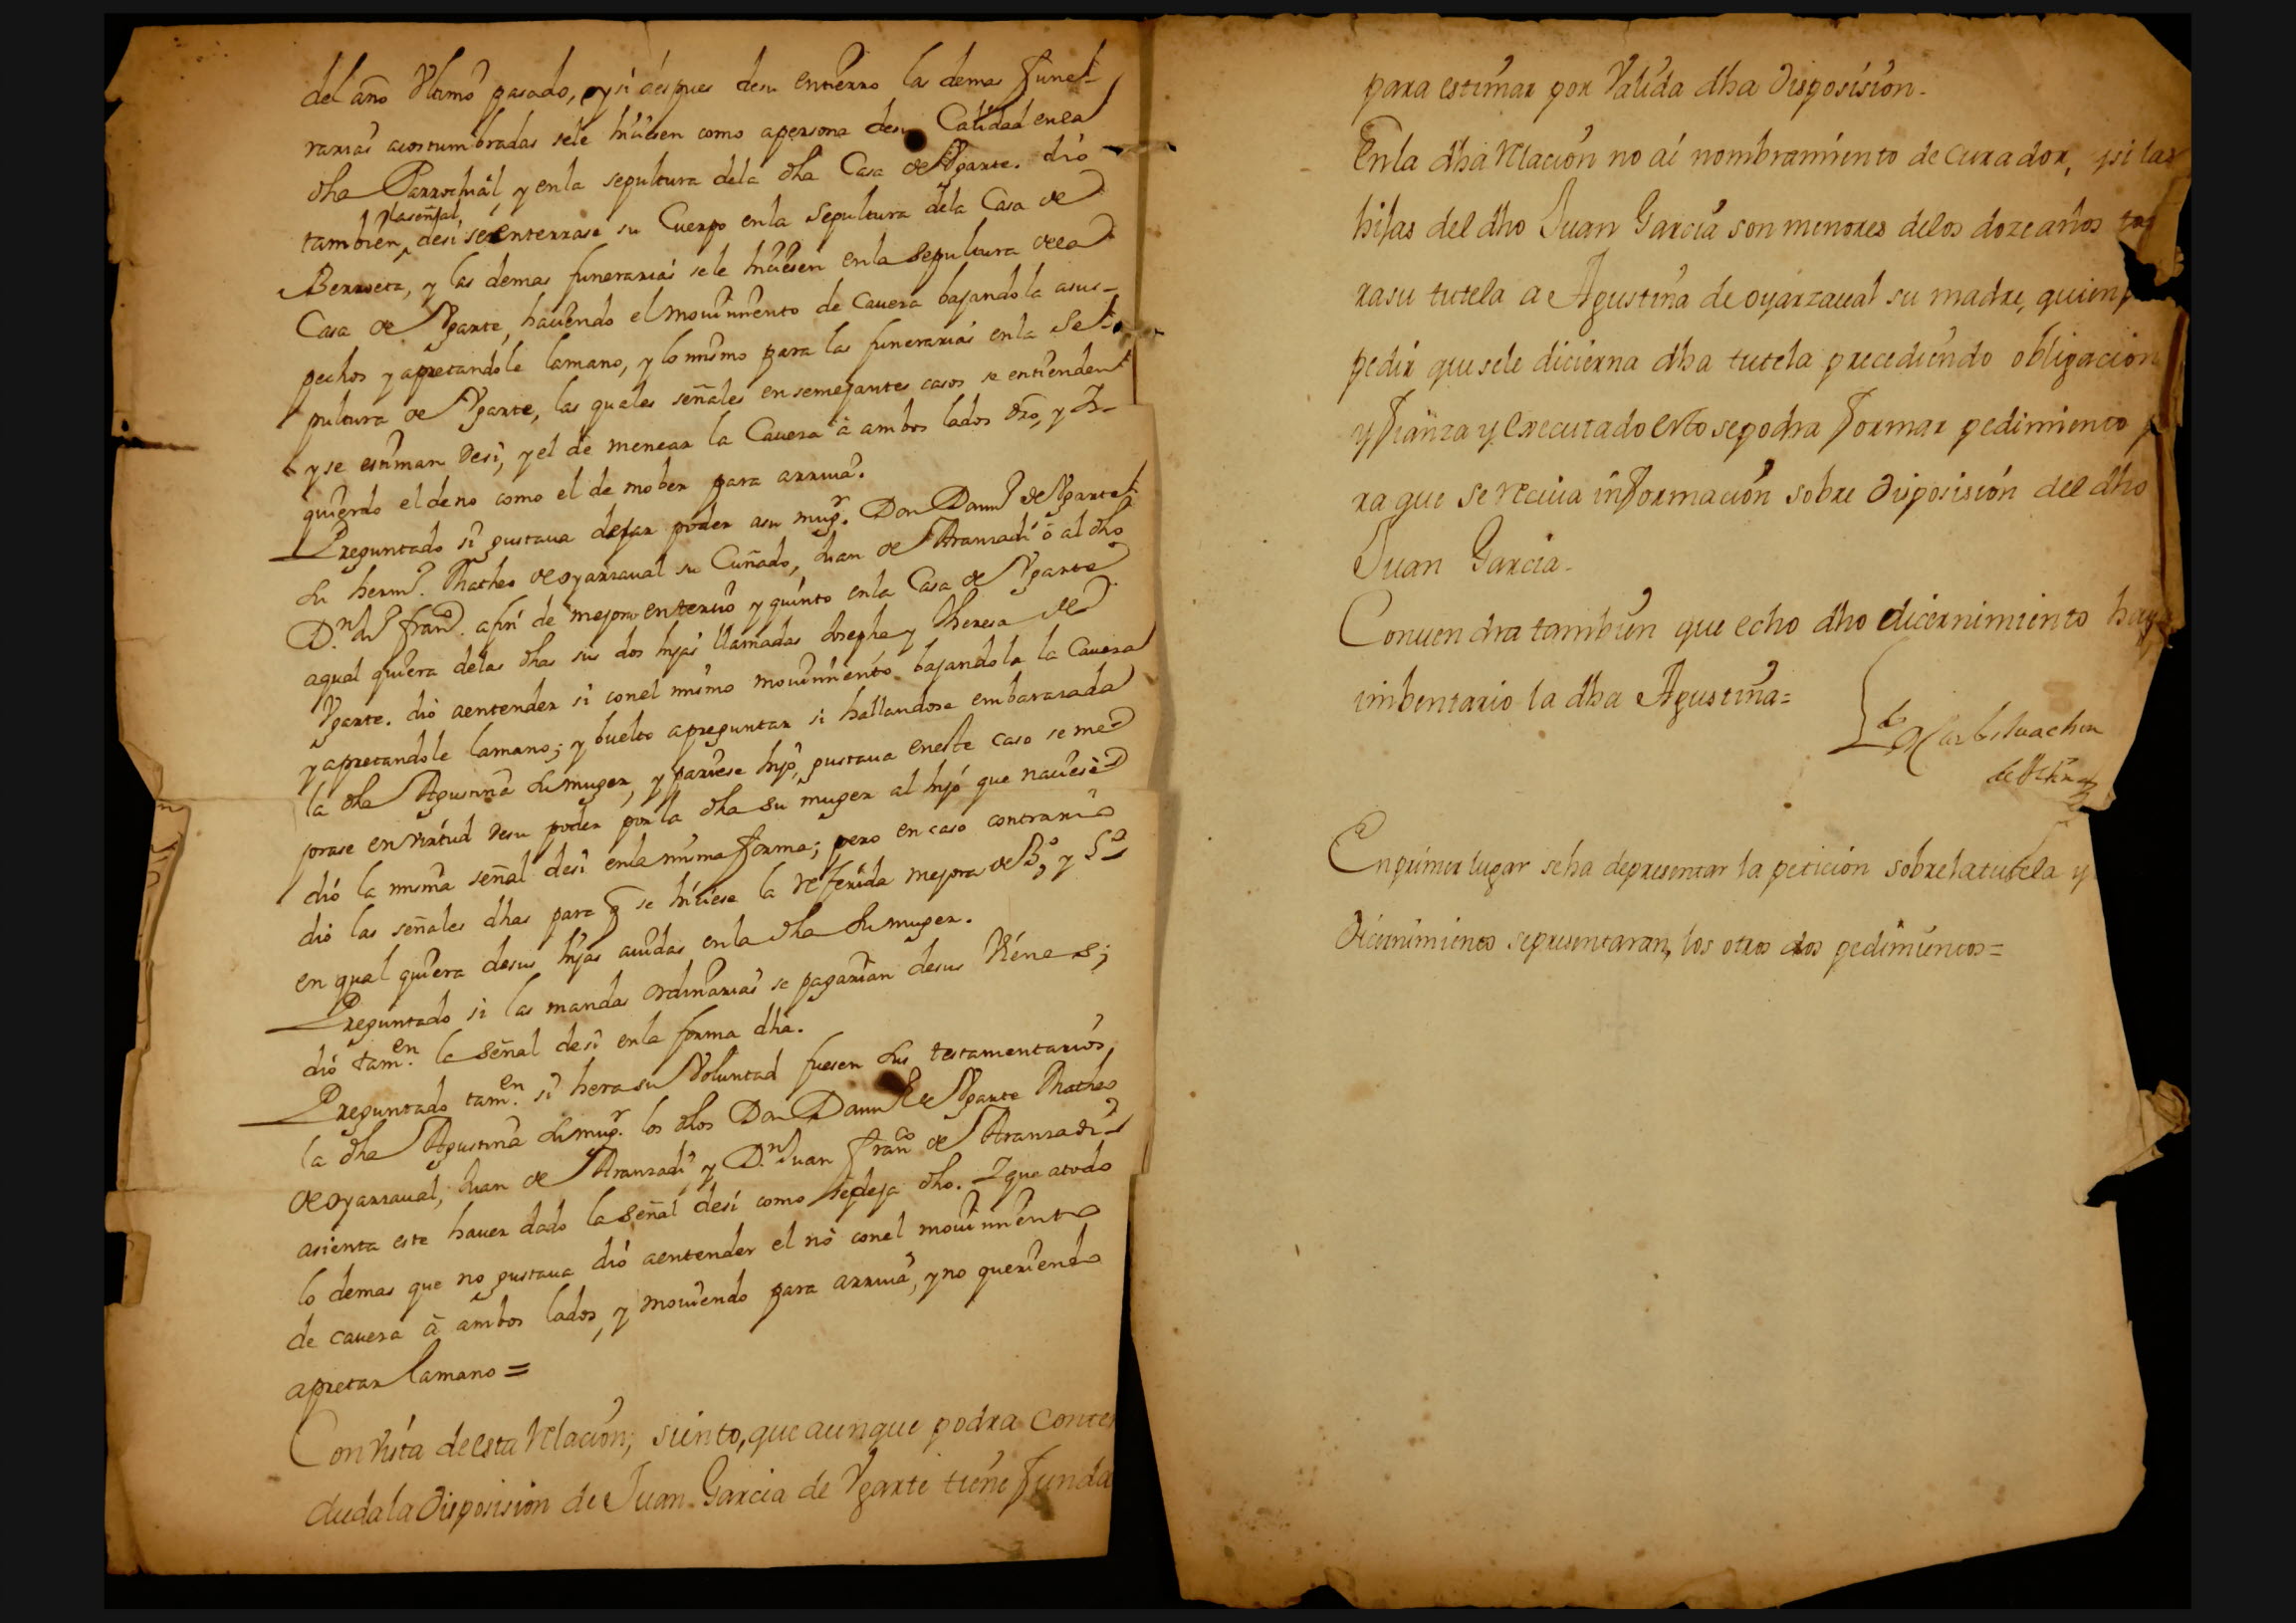 del año Vltimo pasado, y si despues desu entierro las demas fune-
rarias acostumbradas sele hiciesen como apersona desu Calidad enla
dha Parrochial, y enla sepultura dela dha Casa de Vgarte. dió
tambien laseñal, desi seenterrase su Cuerpo enla sepultura dela Casa de
Berrueta, y las demas funerarias sele hiciesen enla sepultura dela
Casa de Vgarte, haciendo el mouimiento de Cauesa bajandola asus-
pechos y apretandole lamano, y lo mismo para las funerarias enla Se-
pultura de Vgarte, las quales señales en semejantes casos se entienden
y se estiman desi, y el de menear la Cauesa à ambos lados dro, y Iz-
quierdo el deno como el de mober para arriua.
Preguntado si gustaua dejar poder asu mugr. Don Dom de Vgarte
su herm. Matheo de oyarzaual su Cuñado, Juan de Aranzadi ò al dho
Dn. Jun franco. afin de mejorar entercio y quinto enla Casa de Vgarte
aqual quiera delas dhas sus dos hijas llamadas Josepha y Theresa de
Vgarte. dió aentender si conel mismo mouimiento bajandola la Cauesa
y apretandole lamano; y buelto apreguntar si hallandose embarazada
la dha Agustina su muger, y pariese hijo, gustaua eneste caso se me
jorase en virtud desu poder por la dha su muger al hijo que naciese
dió la misma señal desi enla misma forma; pero en caso contrario
dió las señales dhas para q se hiciese la referida mejora de 3o, y 5o
en qual quiera desus hijas auidas enla dha su muger.
Preguntado si las mandas ordinarias se pagarian desus Vienes;
dió tamen. la señal desi enla forma dha.
Preguntado tamen. si hera su Voluntad fuesen sus testamentarios,
la dha Agustina su mugr. los dhos Don Dom de Vgarte Matheo
de oyarzaual, Juan de Aranzadi, y Dn. Juan franco de Aranzadi
asienta este hauer dado la señal desi como sedeja dho. Y que atodo
lo demas que no gustaua dió aentender el nó conel mouimiento
de cauesa à ambos lados, y mouiendo para arriua, y no queriendo
apretar lamano =
Con Vista deesta relacion, siento, que aunque podra conte
duda la Disposision de Juan Garcia de Vgarte tiene funda
para estimar por Valida dha Disposision.
Enla dha relacion no ai nombramiento de Curador, y si las
hijas del dho Juan Garcia son menores delos doze años to
rasu tutela a Agustina de oyarzaual su madre, quien
pedir que sele dicierna dha tutela precediendo obligacion
y fianza y executado esto sepodra formar pedimiento p
ra que se reciua informacion sobre Disposision del dho
Juan Garcia.
Conuendra tambien que echo dho dicernimiento haga
imbentario la dha Agustina=
En primer lugar seha depresentar la peticion sobrelatutela y
Dicernimiento sepresentaran, los otros dos pedimientos=